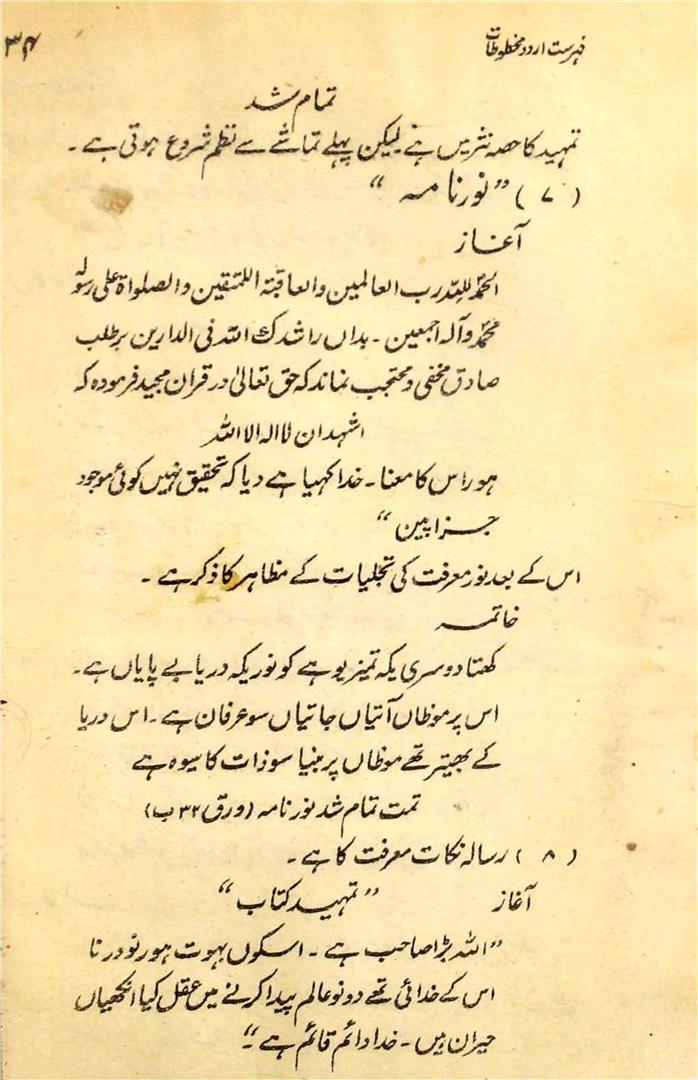 فہرست اردو مخطوطات
۳۴
تمام شد
تمہید کا حصہ نثر میں ہے لیکن پہلے تماشے سے نظم شروع ہوتی ہے ۔
( ۷ ) ”نورنامہ “
آغاز
الحمدُ للہ رب العالمین والعاقبۃ اللمتقین والصلواۃ علی رسولہ
محمدؐ وآلہ اجمعین ۔ بداں راشدک اللہ فی الدارین برطلب
صادق مخفی ومحتجب نماند کہ حق تعالیٰ در قران مجید فرمودہ کہ
اشہد ان لا الہ الا اللہ
ہور اس کا معنا ۔ خدا کہیا ہے دیا کہ تحقیق نہیں کوئی موجود
جزاپین “
اس کے بعد نور معرفت کی تجلیات کے مظاہر کا ذکر ہے ۔
خاتمہ
کھتا دوسری یکہ تمیز یو ہے کو نور یکہ دریا بے پایاں ہے ۔
اس پر موظاں آتیاں جاتیاں سو عرفان ہے ۔ اس دریا
کے بھیتر تھے موظاں پر بنیا سو ذات کا میوہ ہے
تمت تمام شد نور نامہ (ورق ۳۲ ب)
( ۸ ) رسالہ نکات معرفت کا ہے ۔
آغاز ”تمہید کتاب “
”اللہ بڑا صاحب ہے ۔ اسکوں بہوت ہور نودرنا
اس کے خدائی تھے دونو عالم پیدا کرنے میں عقل کیا انکھیاں
حیران ہیں ۔ خدا دائم قائم ہے ۔“